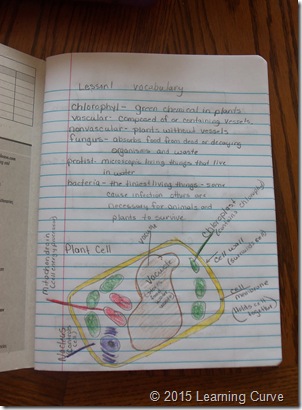 Lesson 1 vocabulary
chlorophyl - green chemical in plants
vascular - composed of or containing vessels
nonvascular - plants without vessels
fungus - absorbs food from dead or decaying
organisms and waste
protist - microscopic living things that live
in water
bacteria - the tiniest living things - some
cause infection others are
necessary for animals and
plants to survive.
Plant Cell
Vacuole
Chloroplast
(contains chlorophyl)
cell wall
cell
membrane
(holds cell
together)
Mitochondrion
Nucleus
© 2015 Learning Curve